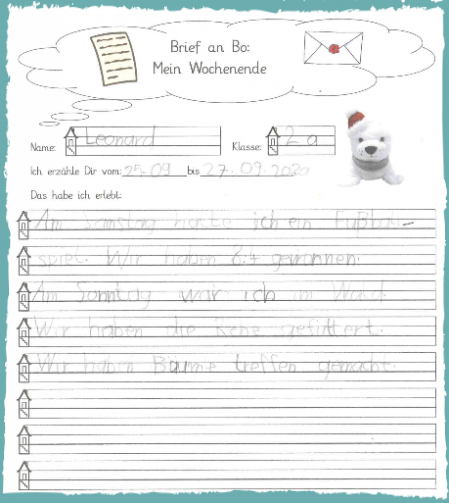 Brief an Bo:
Mein Wochenende
Name: Leonard Klasse: 2a
Ich erzähle Dir vom: 25.09 bis 27.09.2020
Das habe ich erlebt:
Am Samstag hatte ich ein Fußball-
spiel. Wir haben 8:4 gewonnen.
Am Sonntag war ich im Wald.
Wir haben die Rehe gefüttert.
Wir haben Bäume treffen gemacht.